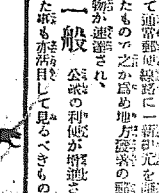 て通常郵便線路に一新紀元を
たもので之が爲め地方發著の郵
物が速達され、
一般 公衆の利便が增進さ
た事も亦刮目して見るべきもの